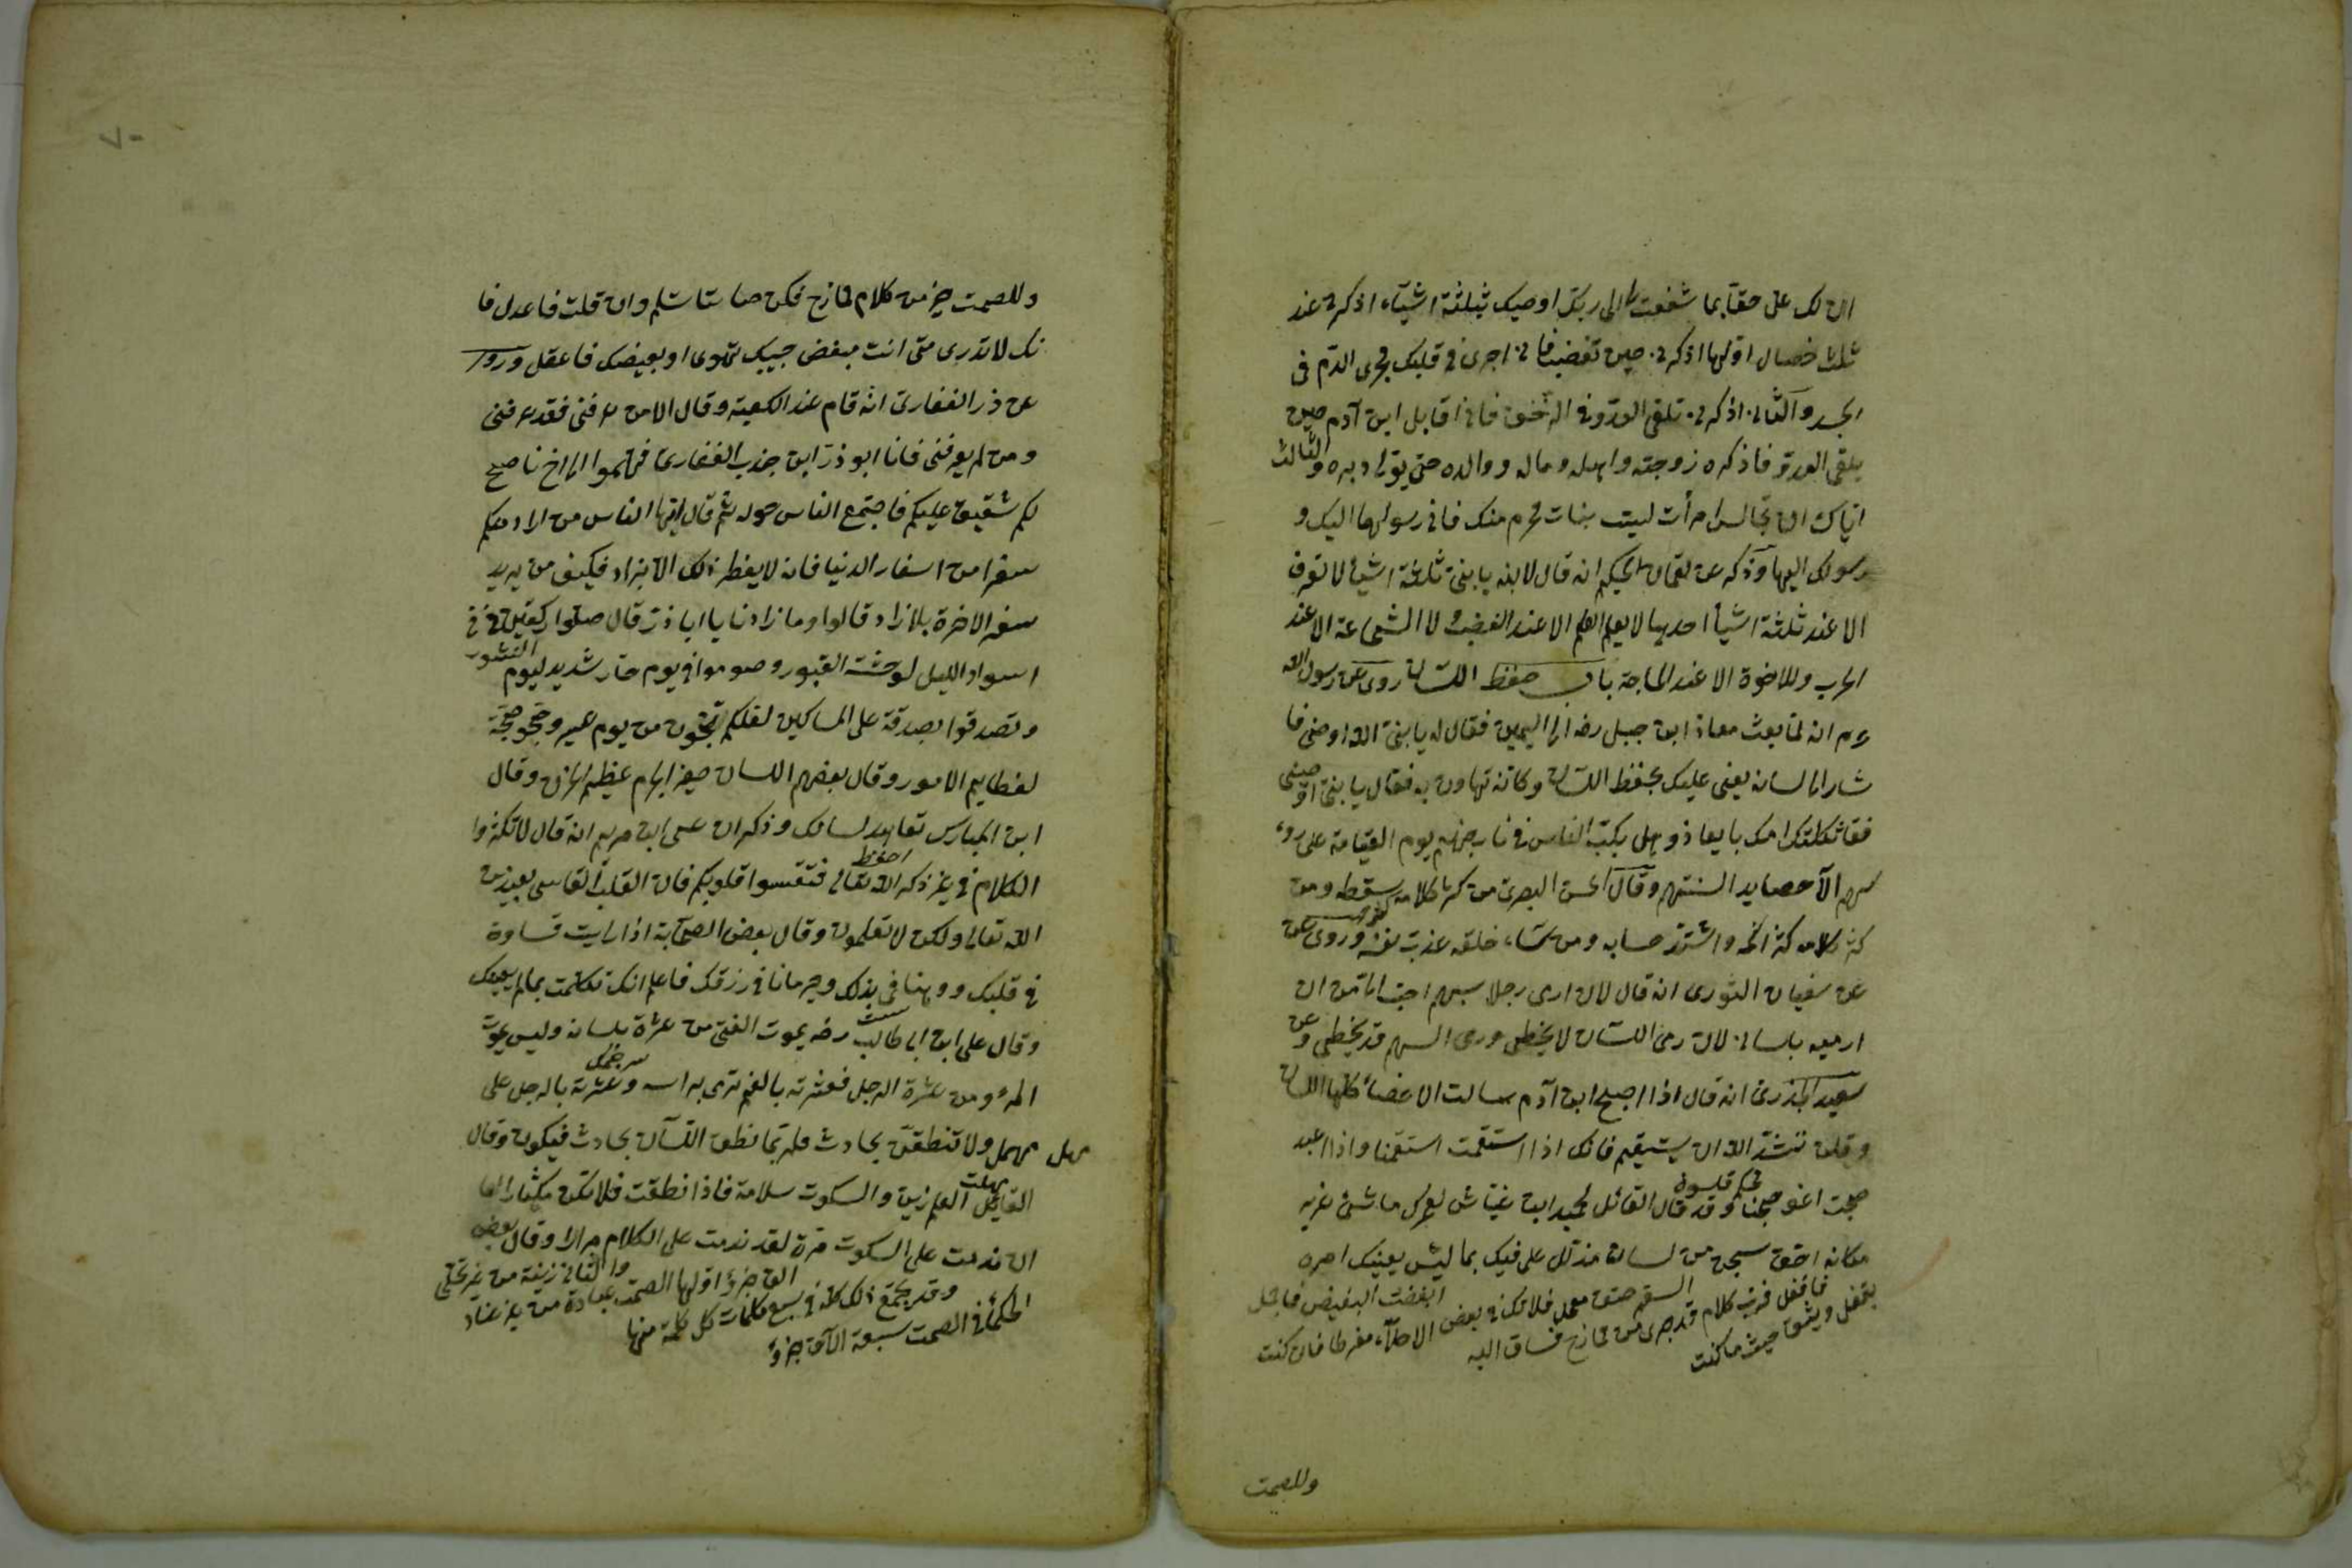 ان لك على حقا بما شفعت لى الى ربك اوصيك بثلثة اشيآء اذكرنى عند
ثلث خصال اولها اذكرنى حين تغضب فانى اجرى فى قلبك مجرى الدم فى
الجسد والثانى اذكرنى تلقى العدو فى الزحف فانى اقابل ابن آدم حين
يلقى العدو فاذكره زوجته واهله وماله ووالده حتى يولى دبره والثالث
اياك ان تجالس امرأت ليست بذات محرم منك فانى رسولها اليك و
رسولك اليها وذكر عن لقمان الحكيم انه قال لابنه يا بنى ثلثة اشيأ لا تعرف
الا عند ثلثة اشيأ احديها لا يعلم الحلم الا عند الغضب ولا الشجاعة الا عند
الحرب وللاخوة الا عند الحاجة باب حفظ اللسان روى عن رسول الله
عم انه لما بعث معاذ ابن جبل رضه الى اليمن فقال له يا بنى الله اوصنى فا
شار الى لسانه يعنى عليك بحفظ اللسان وكانه تهاون به فقال يا بنى الله اوصنى
فقا ثكلتك امك يا معاذ وهل يكب الناس فى نار جهنم يوم القيامة على روء
سهم الا حصايد السنتهم وقال الحسن البصرى من كثر كلامه سقطه ومن
كثر كلامه كثر اثمه واشتد حسابه ومن ساء خلقه عذب نفسه وروى عن
عن سفيان الثورى انه قال لان ارمى رجلا بسهم احب الى من ان
ارميه بلسانى لان رمى اللسان لا يخطى ورمى السهم قد يخطى وعن
سعيد الخذرى انه قال اذا اصبح ابن آدم سالت الاعضأ كلها اللسان
وقلن ننشد الله ان يستيقم فانك اذا استقمت استقمنا واذا عبد
مكانه احق بسجن من لسان مذلل على فيك بما ليس يعنيك امره
فرب كلام قد جرى من ممازح فساق اليه
ويثق حيث ما كنت
وللصمت
٧٠
وللصمت خير من كلام ممازح فكن صامتا تسلم وان قلت فاعدل فا
نك لا تدرى متى انت مبغض حبيبك تهوى او بعيضك فاعقل وروى
عن ذر الغفارى انه قام عند الكعبة وقال الا من عرفنى فقد عرفنى
ومن لم يعرفنى فانا ابو ذر ابن جندب الغفارى فهلموا الى اخ ناصح
لكم شفيق عليكم فاجتمع الناس حوله ثم قال ايها الناس من اراد منكم
سفرا من اسفار الدنيا فانه لا يفطر ذلك الا بزاد فكيف من يريد
سفر الاخرة بلا زاد قالوا وما زادنا يا ابا ذر قال صلوا ركعتين فى
اسواد الليل لوحشة القبور وصوموا فى يوم حار شديد ليوم النشور
وتصدقوا بصدقة على المساكين لعلكم تنجون من يوم عسير وحجوا حجة
لعظايم الامور وقال بعضهم اللسان صغير الجرم عظيم الجرم وقال
ابن المبارس تعاهد لسانك وذكر ان عيسى ابن مريم انه قال لا تكثروا
الكلام فى غير ذكر الله تعالى فتقسوا قلوبكم فان القلب القاسى بعيد من
الله تعالى ولكن لا تعلمون وقال بعض الصحابة اذا رايت قساوة
فى قلبك ووهنا فى بدنك وحرمانا فى رزقك فاعلم انك تكلمت بما لم يعينك
وقال على ابن ابى طالب رضه يموت الفتى من عثرة بلسانه وليس يموت
المرء ومن عثرة الرجل فعثرته بالفم ترمى براسه وعثرته بالرجل على
مهل ولا تنطقن بحادث فلربما نطق اللسان بحادث فيكون وقال
القايل العلم زين والسكوت سلامة فاذا نطقت فلا تكن مكثارا فما
ان ندمت على السكوت مرة لقد ندمت على الكلام مرارا وقال بعض
الحكمأ فى الصمت سبعة الآف جزؤ
وقد يجتمع ذلك كله فى سبع كلمات كل كلمة منها
الف جزؤ اولها الصمت عبادة من غير عناد
والثانى زينة من غير حلى